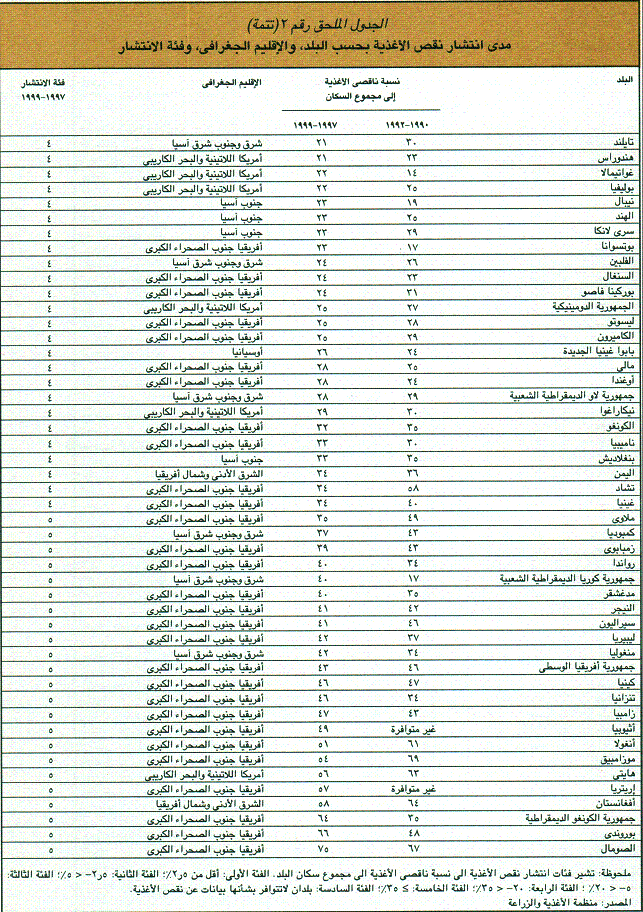 الجدول الملحق رقم ٢ (تتمة)
مدى انتشار نقص الأغذية بحسب البلد، والإقليم الجغرافى، وفئة الانتشار
البلد نسبة ناقصى الأغذية الإقليم الجغرافى فئة الانتشار
إلى مجموع السكان ١٩٩٧-١٩٩٩
١٩٩٠-١٩٩٢ ١٩٩٧-١٩٩٩
تايلند ٣٠ ٢١ شرق وجنوب شرق آسيا ٤
هندوراس ٢٣ ٢١ أمريكا اللاتينية والبحر الكاريبى ٤
غواتيمالا ١٤ ٢٢ أمريكا اللاتينية والبحر الكاريبى ٤
بوليفيا ٢٥ ٢٢ أمريكا اللاتينية والبحر الكاريبى ٤
نيبال ١٩ ٢٣ جنوب آسيا ٤
الهند ٢٥ ٢٣ جنوب آسيا ٤
سرى لانكا ٢٩ ٢٣ جنوب آسيا ٤
بوتسوانا ١٧ ٢٣ أفريقيا جنوب الصحراء الكبرى ٤
الفلبين ٢٦ ٢٤ شرق وجنوب شرق آسيا ٤
السنغال ٢٣ ٢٤ أفريقيا جنوب الصحراء الكبرى ٤
بوركينا فاصو ٣١ ٢٤ أفريقيا جنوب الصحراء الكبرى ٤
الجمهورية الدومينيكية ٢٧ ٢٥ أمريكا اللاتينية والبحر الكاريبى ٤
ليسوتو ٢٨ ٢٥ أفريقيا جنوب الصحراء الكبرى ٤
الكاميرون ٢٩ ٢٥ أفريقيا جنوب الصحراء الكبرى ٤
بابوا غينيا الجديدة ٢٤ ٢٦ أوسيانيا ٤
مالى ٢٥ ٢٨ أفريقيا جنوب الصحراء الكبرى ٤
أوغندا ٢٤ ٢٨ أفريقيا جنوب الصحراء الكبرى ٤
جمهورية لاو الديمقراطية الشعبية ٢٩ ٢٨ شرق وجنوب شرق آسيا ٤
نيكاراغوا ٣٠ ٢٩ أمريكا اللاتينية والبحر الكاريبى ٤
الكونغو ٣٥ ٣٢ أفريقيا جنوب الصحراء الكبرى ٤
ناميبيا ٣٠ ٣٣ أفريقيا جنوب الصحراء الكبرى ٤
بنغلاديش ٣٥ ٣٣ جنوب آسيا ٤
اليمن ٣٦ ٣٤ الشرق الأدنى وشمال أفريقيا ٤
تشاد ٥٨ ٣٤ أفريقيا جنوب الصحراء الكبرى ٤
غينيا ٤٠ ٣٤ أفريقيا جنوب الصحراء الكبرى ٤
ملاوى ٤٩ ٣٥ أفريقيا جنوب الصحراء الكبرى ٥
كمبوديا ٤٣ ٣٧ شرق وجنوب شرق آسيا ٥
زمبابوى ٤٣ ٣٩ أفريقيا جنوب الصحراء الكبرى ٥
رواندا ٣٤ ٤٠ أفريقيا جنوب الصحراء الكبرى ٥
جمهورية كوريا الديمقراطية الشعبية ١٧ ٤٠ شرق وجنوب شرق آسيا ٥
مدغشقر ٣٥ ٤٠ أفريقيا جنوب الصحراء الكبرى ٥
النيجر ٤٢ ٤١ أفريقيا جنوب الصحراء الكبرى ٥
سيراليون ٤٦ ٤١ أفريقيا جنوب الصحراء الكبرى ٥
ليبيريا ٣٧ ٤٢ أفريقيا جنوب الصحراء الكبرى ٥
منغوليا ٣٤ ٤٢ شرق وجنوب شرق آسيا ٥
جمهورية أفريقيا الوسطى ٤٦ ٤٣ أفريقيا جنوب الصحراء الكبرى ٥
كينيا ٤٧ ٤٦ أفريقيا جنوب الصحراء الكبرى ٥
تنزانيا ٣٤ ٤٦ أفريقيا جنوب الصحراء الكبرى ٥
زامبيا ٤٣ ٤٧ أفريقيا جنوب الصحراء الكبرى ٥
أثيوبيا غير متوافرة ٤٩ أفريقيا جنوب الصحراء الكبرى ٥
أنغولا ٦١ ٥١ أفريقيا جنوب الصحراء الكبرى ٥
موزامبيق ٦٩ ٥٤ أفريقيا جنوب الصحراء الكبرى ٥
هايتى ٦٣ ٥٦ أمريكا اللاتينية والبحر الكاريبى ٥
إريتريا غير متوافرة ٥٧ أفريقيا جنوب الصحراء الكبرى ٥
أفغانستان ٦٤ ٥٨ الشرق الأدنى وشمال أفريقيا ٥
جمهورية الكونغو الديمقراطية ٣٥ ٦٤ أفريقيا جنوب الصحراء الكبرى ٥
بوروندى ٤٨ ٦٦ أفريقيا جنوب الصحراء الكبرى ٥
الصومال ٦٧ ٧٥ أفريقيا جنوب الصحراء الكبرى ٥
ملحوظة: تشير فئات انتشار نقص الأغذية الى نسبة ناقصى الأغذية الى مجموع سكان البلد. الفئة الأولى: أقل من ٢٫٥٪؛ الفئة الثانية: ٢٫٥- < ٥٪؛ الفئة الثالثة:
٥- < ٢٠٪ ؛ الفئة الرابعة: ٢٠- < ٣٥٪؛ الفئة الخامسة: ≥ ٣٥٪؛ الفئة السادسة: بلدان لاتتوافر بشأنها بيانات عن نقص الأغذية.
المصدر: منظمة الأغذية والزراعة